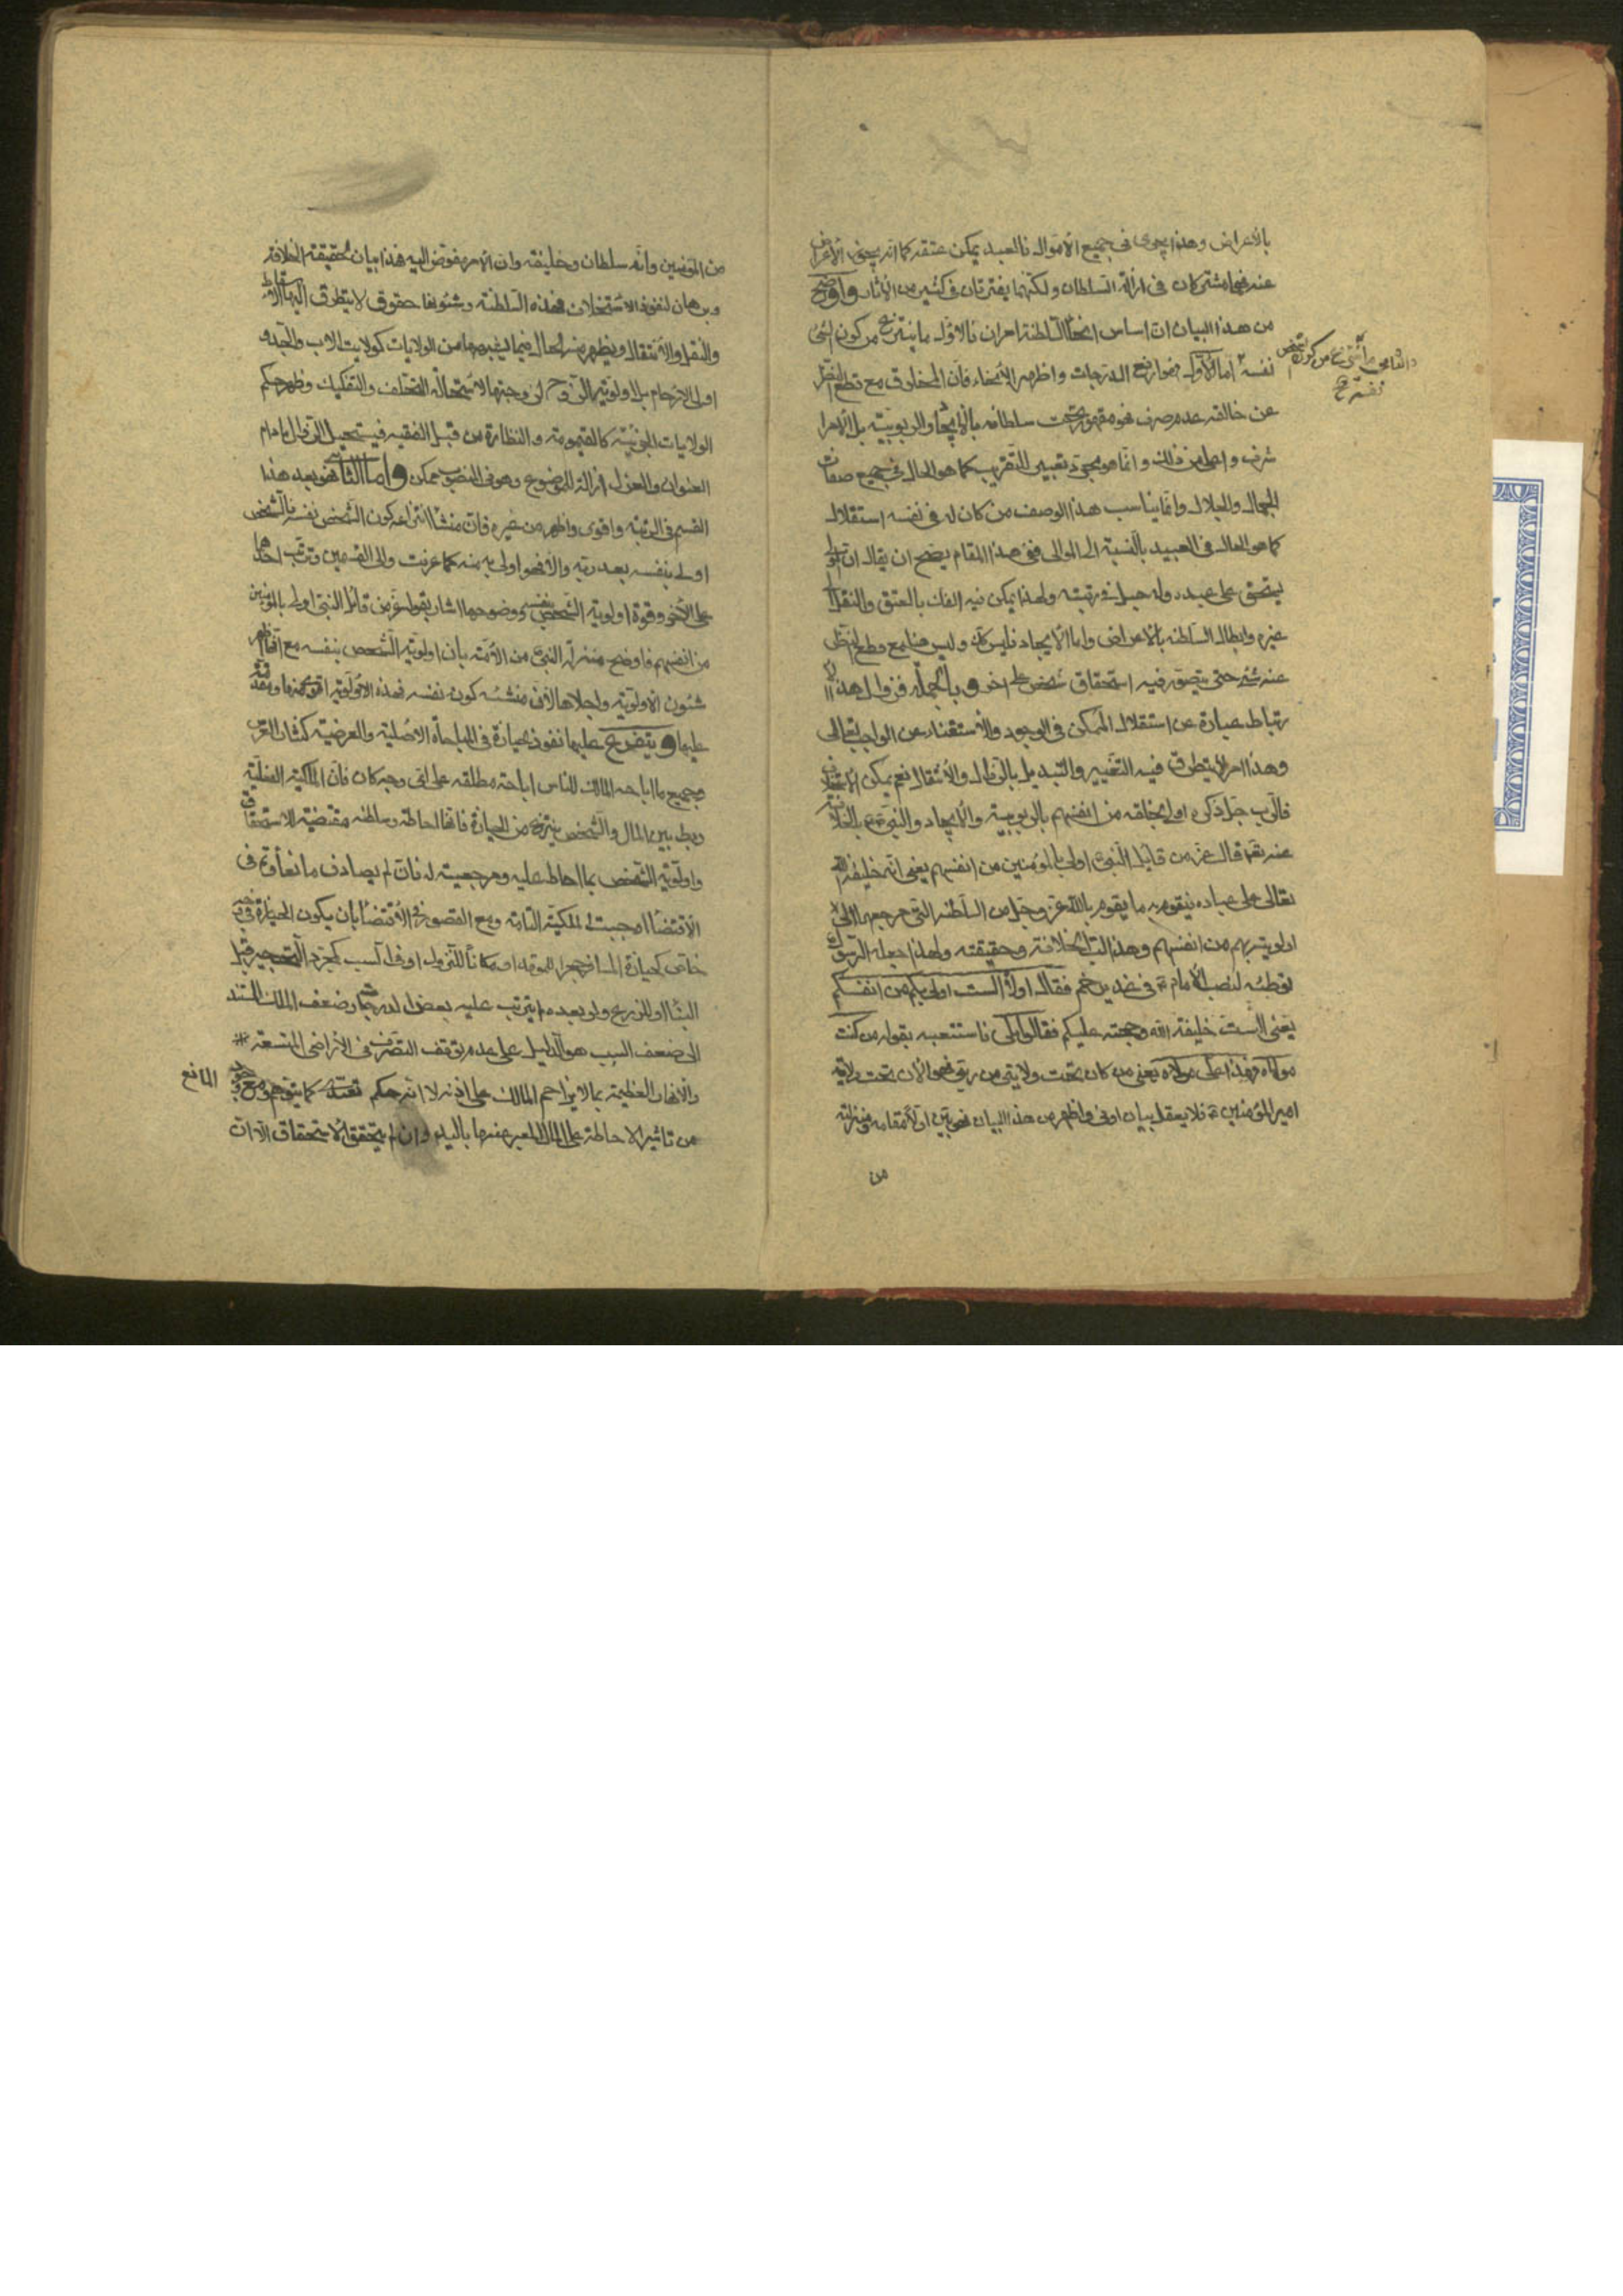 بالأعراض وهذا يجرى فى جميع الأموال فالعبد يمكن عتقه كما انه يجوز الأعراض
عنه فهما مشتركان فى ازالة السلطان ولكنهما يفترقان فى كثير من الاثار واوضح
من هذا البيان ان اساس انحاء السلطنة امران فالاول ما ينتزع من كون الشئ
نفسه اما الأول فهو ارفع الدرجات واظهر الأنحاء فان المخلوق مع قطع النظر
والثانى ما انتزع من كون الشخص
نفسه صح
عن خالقه عدم صرف فهو مقهور تحت سلطانه بالايجاد والربوبية بل الامر ا
شرف واعلى من ذلك وانما هو مجرد تعبير للتقريب كما هو الحال فى جميع صفات
الجمال والجلال وانما يناسب هذا الوصف من كان له فى نفسه استقلال
كما هو الحال فى العبيد بالنسبة الى الموالى ففى هذا المقام يصح ان يقال ان المولى
يستحق على عبده وله حبل فى رقبته ولهذا يمكن فيه الفك بالعتق والنقل الى
غيره وابطال السلطنه بالاعراض واما الايجاد فليس كك وليس هنا مع قطع النظر
عنه شئ حتى يتصور فيه استحقاق شخص على اخر وبالجملة فزوال هذا الا
رتباط عبارة عن استقلال الممكن فى الوجود والاستغناء عن الواجب تعالى
وهذا امر لا يتطرق فيه التغيير والتبديل بالزوال والأنتقال نعم يمكن الاستخلاف
فالرب جل ذكره اولى بخلقه من انفسهم بالربوبية والأيجاد والنبى ص بالخلافة
عنه تعالى قال عز من قائل النبى اولى بالمؤمنين من انفسهم يعنى انه خليفة الله
تعالى على عباده فيقوم به ما يقوم بالله عز وجل من السلطنة التى مرجعها الى
اولويته بهم من انفسهم وهذا النيل الخلافة وحقيقته ولهذا جعله الرسول
توطئه لنصب الأمام ع فى غدير خم فقال اولا الست اولى بكم من انفسكم
يعنى الست خليفة الله وحجته عليكم فقالوا بلى فاستتبعه بقوله من كنت
مولاه فهذا على مولاه يعنى من كان تحت ولايتى من ربقى فهو الأن تحت ولاية
امير المؤمنين ع فلا يعقل بيان اوفى واظهر من هذا البيان فهو بين اولا مقامه ومنزلته
من
من المؤمنين وانه سلطان وخليفة وان الأمر مفوض اليه فهذا بيان لحقيقة الخلافة
وبرهان لنفوذ الاستخلاف فهذه السلطنة وشئونها حقوق لا يتطرق اليها الاسقاط
والنقل والأنتقال ويظهر منه الحال فيما يشبهها من الولايات كولاية الاب والجد و
اولى الارحام بل اولوية الزوج لزوجتها لاستحالة التخلف والتفكيك وظهر حكم
الولايات الجزئية كالقيمومة والنظارة من قبل الفقيه فيستحيل الزوال مادام
العنوان والعزل ازالة للموضوع وهو فى النصب ممكن واما الثانى فهو بعد هذا
القسم فى الرتبة واقوى واظهر من غيره فان منشأ انتزاعه كون الشخص نفسه فالشخص
اولى بنفسه بعد ربه والانحو اولى به منه كما عرفت والى القسمين وترتب احدهما
على الأخر وقوة اولوية الشخص بنفسه ووضوحها اشار بقوله عز من قائل النبى اولى بالمؤمنين
من انفسهم فاوضح منزلة النبى من الأمة بان اولوية الشخص بنفسه مع انها اقوى
شئون الاولوية واجلاها لان منشئه كونه نفسه فهذه الاولوية اقوى منها ومقدمة
عليها ويتضرع عليها نفوذ حيازة فى المباحاة الاصلية والعرضية كنثار العرس
وجميع ما اباحه المالك للناس اباحة مطلقه على اى وجه كان فان المالكية الفعلية
ربط بين المال والشخص ينتزع من الحيازة فانها احاطة وسلطنة مقتضية للاستحقاق
واولوية الشخص بما احاط عليه ومرجعيته له فان لم يصادف مانعا وتم فى
الاقتضاء اوجبت الملكية التامة ومع القصور فى الأقتضاء بان يكون الحيازة فى وجه
خاص كحيازة المسافر حجرا للموقد او مكانا للنزول او فى السبب كمجرد التحجير قبل
البناء او للزرع ولو بعده ما يترتب عليه بعض الدرجات وضعف الملك المستند
الى ضعف السبب هو الدليل على عدم توقف التصرف فى الاراضى المتسعة
والأنهار العظيمة بما لا يزاحم المالك على اذنه لا انه حكم تعبدى كما يتوهم ومع وجود المانع
من تاثير الاحاطة على المال المعبر عنها باليد وان لم يتحقق الاستحقاق الا ان